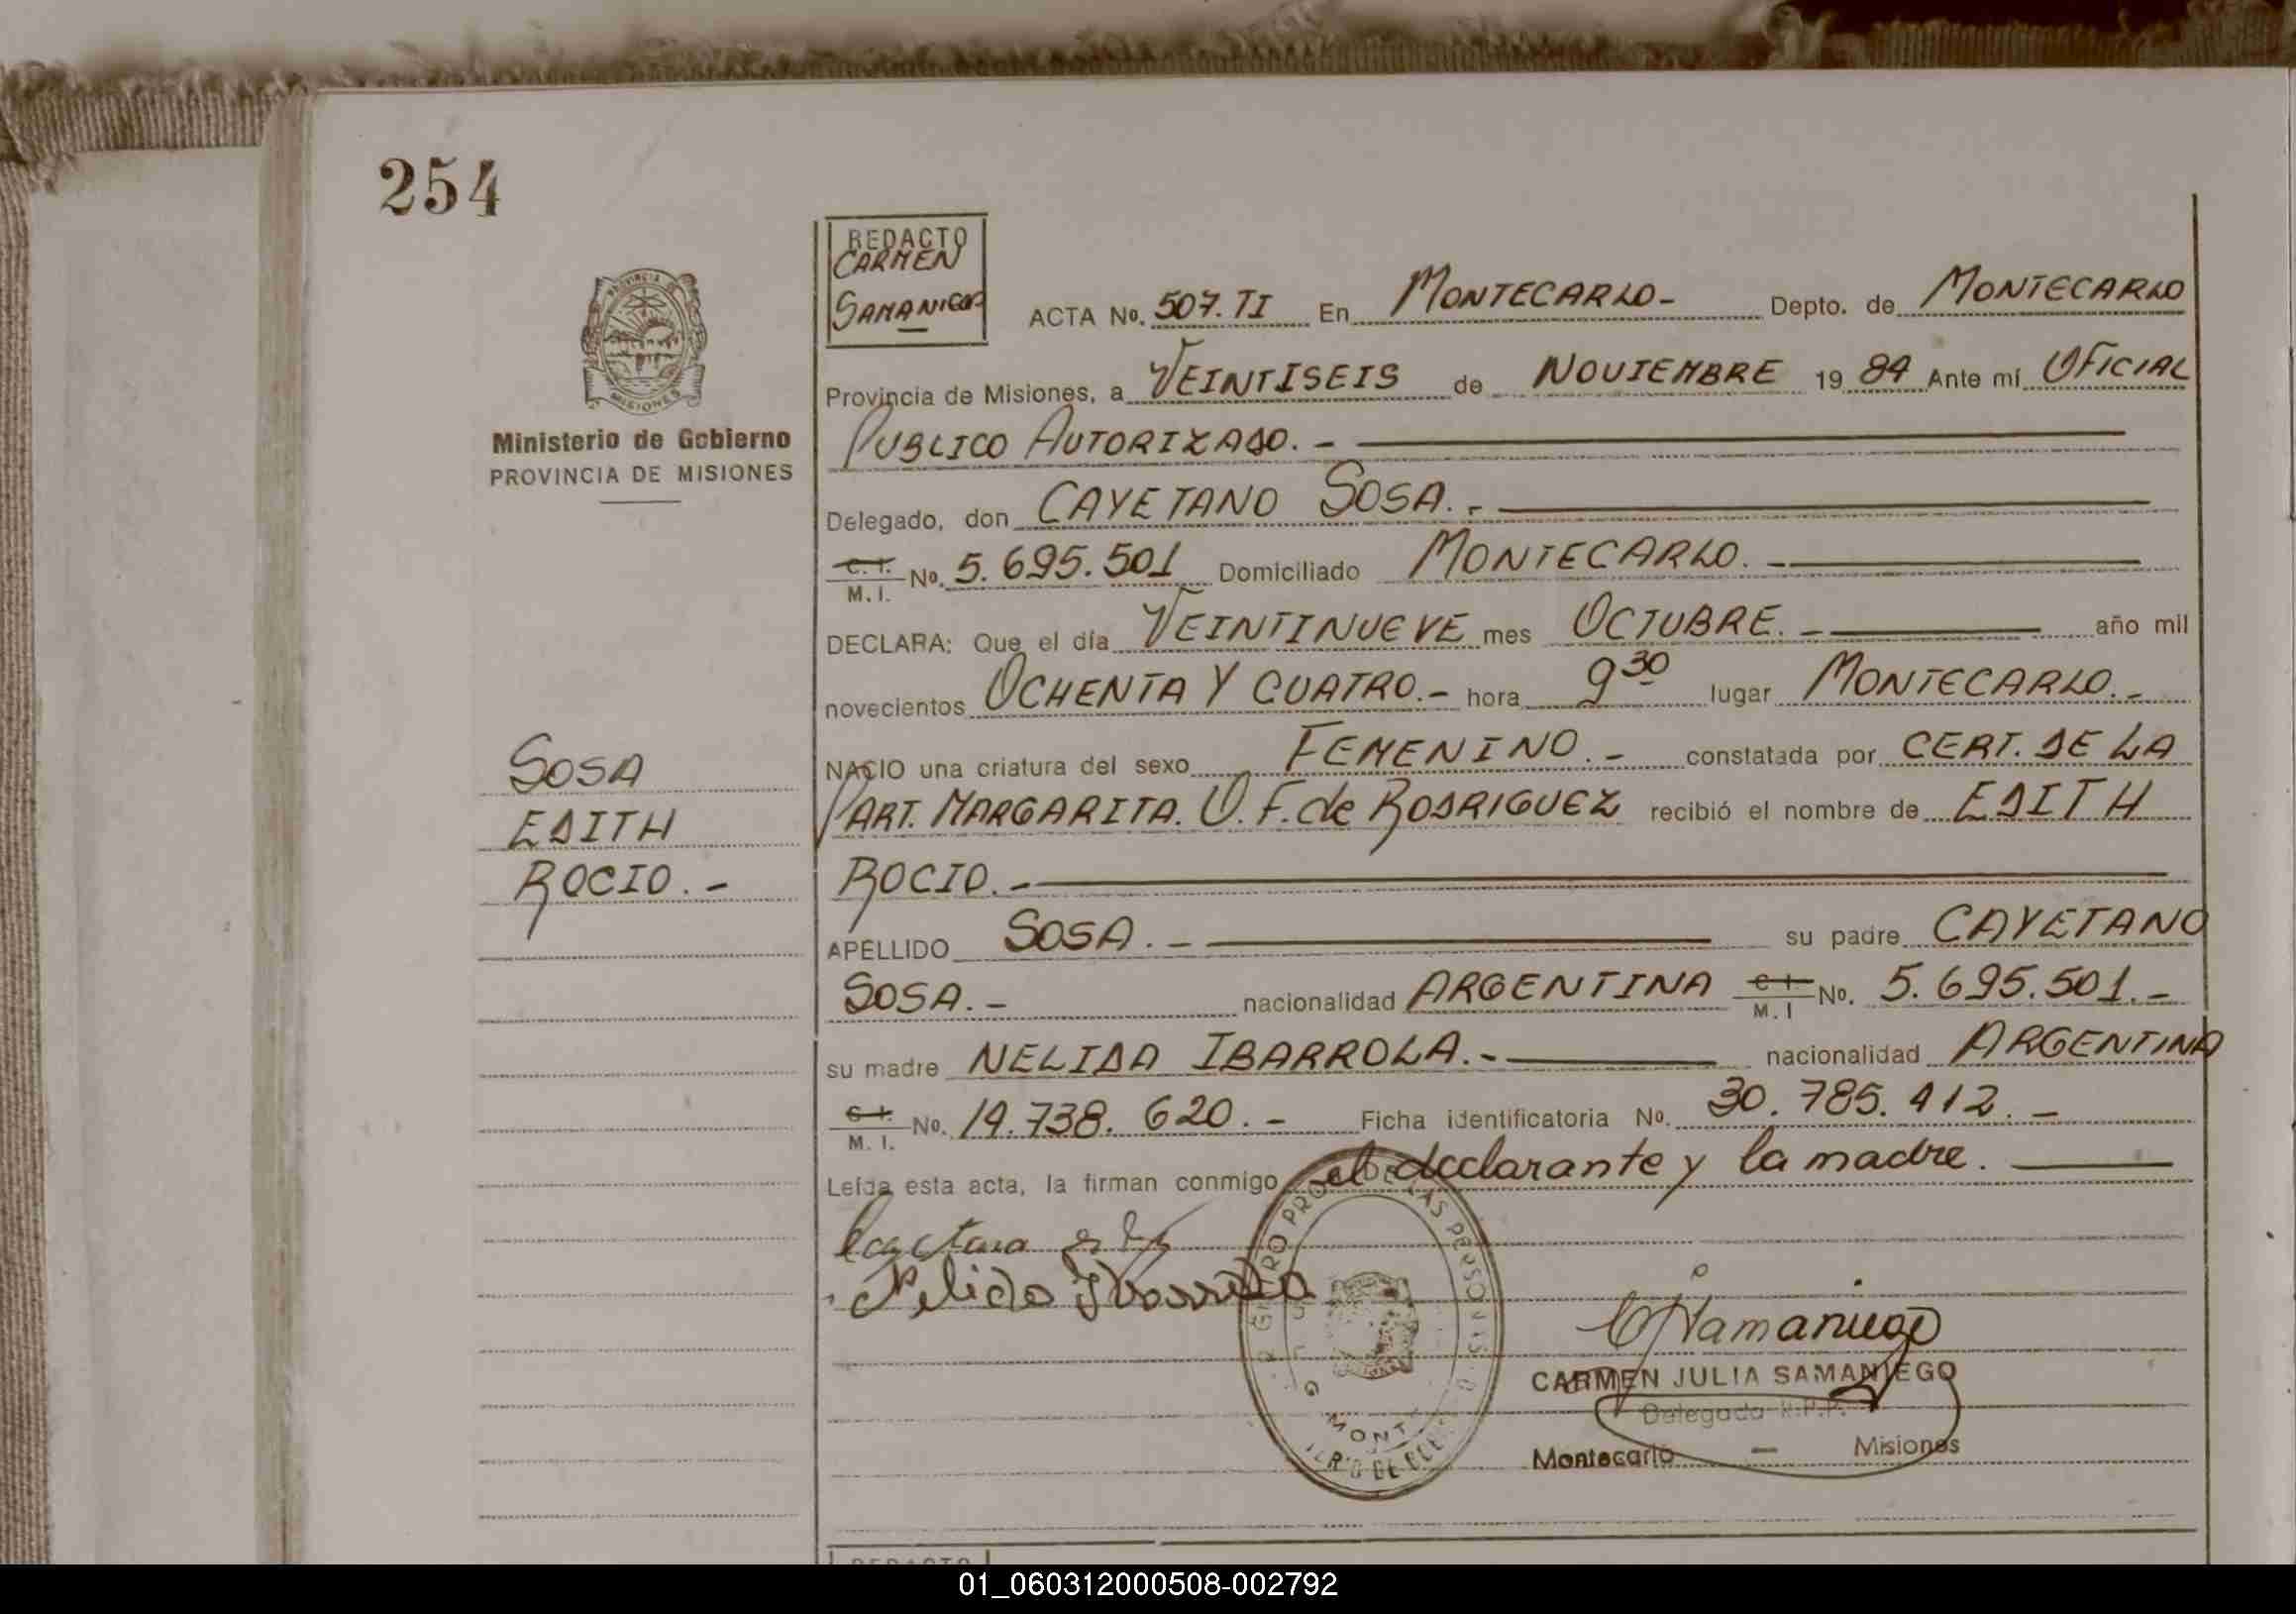 254
REDACTO
CARMEN
SAMANIEGO
ACTA No. 507. TI En MONTECARLO- Depto. de MONTECARLO
Provincia de Misiones, a VEINTISEIS de NOVIEMBRE 19 84 Ante mí OFICIAL
PUBLICO AUTORIZADO. -
Delegado, don CAYETANO SOSA. -
C. I. M. I. No. 5.695.501 Domiciliado MONTECARLO. -
DECLARA: Que el día VEINTINUEVE mes OCTUBRE. - año mil
novecientos OCHENTA Y CUATRO. - hora 9 30 lugar MONTECARLO. -
NACIO una criatura del sexo FEMENINO. - constatada por CERT. DE LA
PART. MARGARITA. O. F. de RODRIGUEZ recibió el nombre de EDITH
ROCIO. -
APELLIDO SOSA. - su padre CAYETANO
SOSA. - nacionalidad ARGENTINA C I M. I No. 5.695.501. -
su madre NELIDA IBARROLA. - nacionalidad ARGENTINA
C I. M. I. No. 14.738.620. - Ficha identificatoria No. 30.785.412. -
Leída esta acta, la firman conmigo el declarante y la madre.
PROVINCIA DE
MISIONES
Ministerio de Gobierno
PROVINCIA DE MISIONES
SOSA
EDITH
ROCIO. -
Cayetano
Nelida Ibarrola
DE LAS PERSONAS
MONT
CJSamaniego
CARMEN JULIA SAMANIEGO
Delegada R.P.P.
Montecarlo - Misiones
REDACTO
01_060312000508-002792